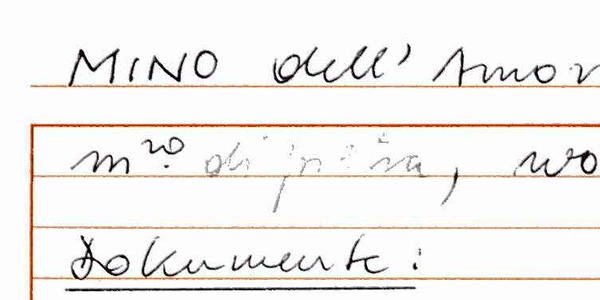 MINO dell' Amor
m.ro di pietra, wo
Dokumente: